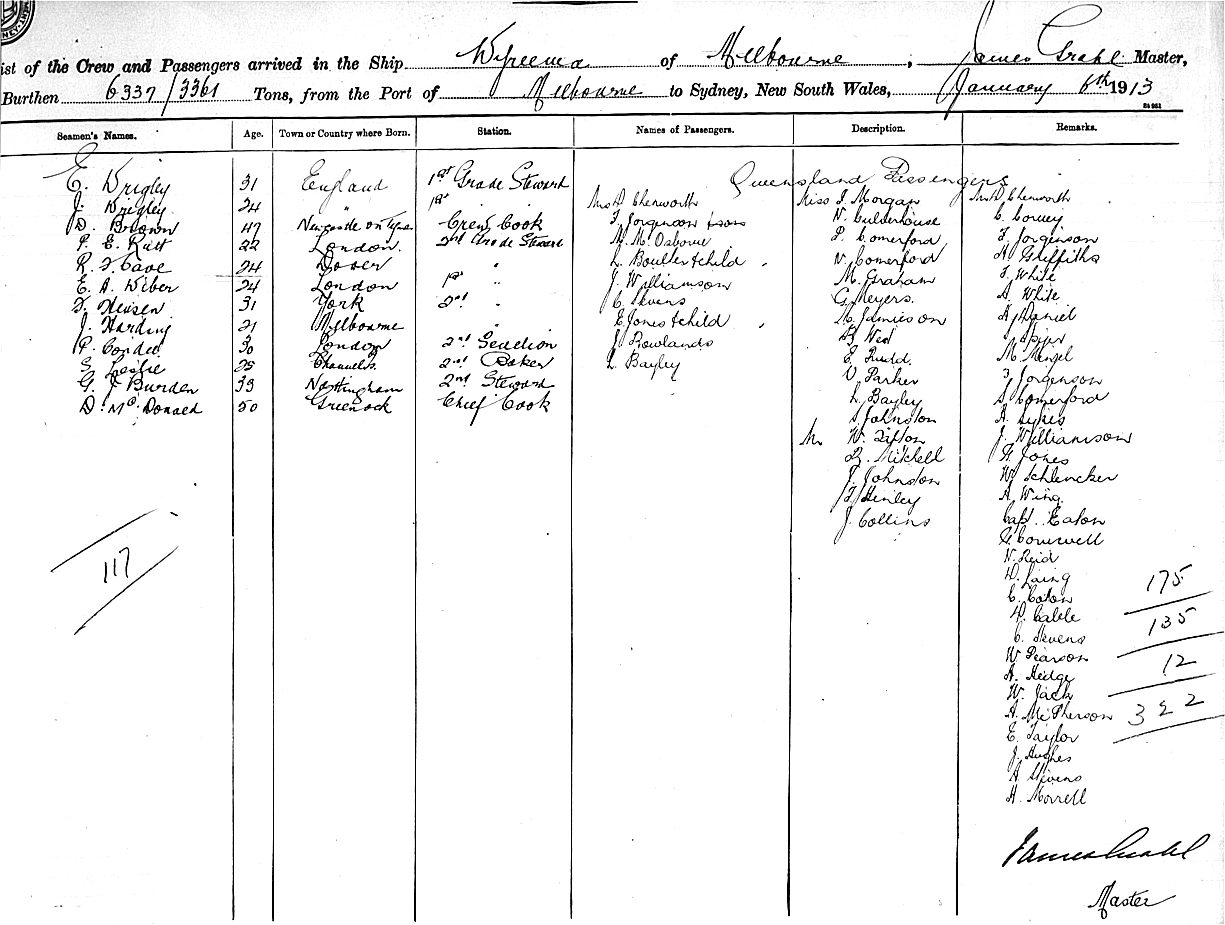 ist of the Crew and Passengers arrived in the Ship Wyreema of Melbourne, James Grahl Master,
Burthen 6337/3361 Tons, from the Port of Melbourne to Sydney, New South Wales, January 6th 1913
Seamen's Names. Age. Town or Country where Born. Station. Names of Passengers. Description. Remarks.
Queensland Passengers
E. Wrigley 31 England 1st Grade Steward
J. Wrigley 24 " 1st " Mrs P Chenworth Miss I. Morgan Mr P Chenworth
D. Brown 47 Newcastle on Tyne Crew Cook F Jorgenson & sons N. Culderhouse C. Corney
P. E. Ratt 22 London. 2nd Grade Steward M. M. Osborne P. Comerford F. Jorgenson
R. F. Cave 24 Dover " L. Boulter & child N. Comerford H Griffiths
E. A. Wiber 24 London 1st " J. Williamson M. Graham F. White
31 York 2nd " C Stevens G. Meyers. A. White
J. Harding 21 Melbourne E Jones & child Jamieson A. Daniel
P. 30 London 2nd J Rowlands
S. Leslie 25 2nd Baker L. Bayley E. Rudd. M. Mengel
G. J Burden 33 Nottingham 2nd Steward V. Parker F. Jorgenson
D. McDonald 50 Greenock Chief Cook L. Bayley S. Comerford
S. Johnston A. Sykes
Mr W. Tifton J. Williamson
Mitchell H Jones
J. Johnston W. Schlencker
F. Henley A. Wing.
J. Collins Capt. Eaton
H. Cornwell
N. Reid
117 D. Laing 175
C. Eaton
P. Cable 135
C. Stevens
W. Pearson 12
A. Hedge
W. Jack
A. McPherson 322
E. Taylor
J. Hughes
A Stevens
A. Morrell
James Grahl
Master